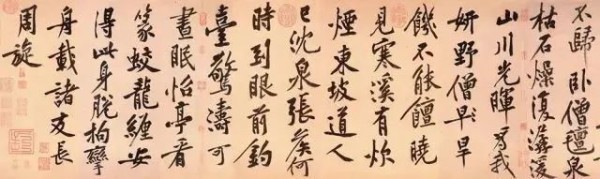 不歸卧僧氈泉
枯石燥復潺湲
山川光暉為我
妍野僧早旱
饑不能饘曉
見寒溪有炊
煙東坡道人
已沈泉張侯何
時到眼前釣
臺驚濤可
晝眠怡亭看
篆蛟龍纏安
得此身脫拘攣
舟載諸友長
周旋